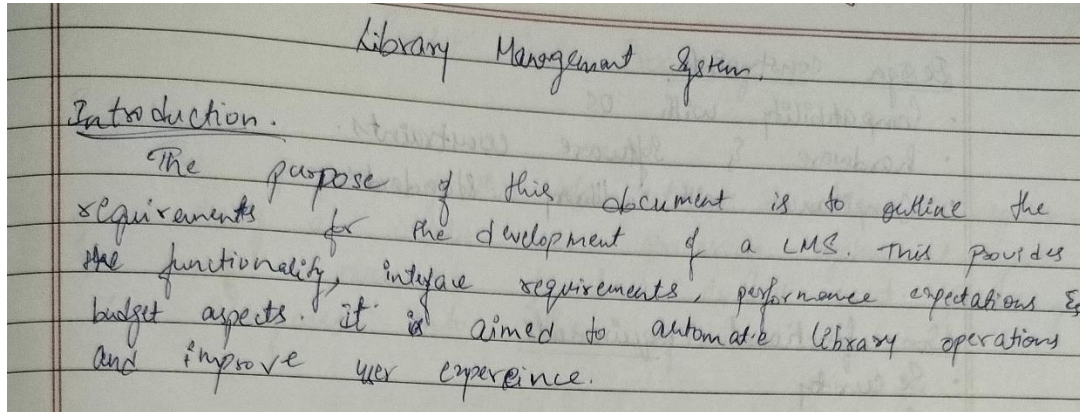 Library Management System.
Introduction.
The purpose of this document is to outline the
requirements for the development of a LMS. This provides
the functionality, inteface requirements, performance expectations &
budget aspects. it is aimed to automate library operations
and improve user expereince.